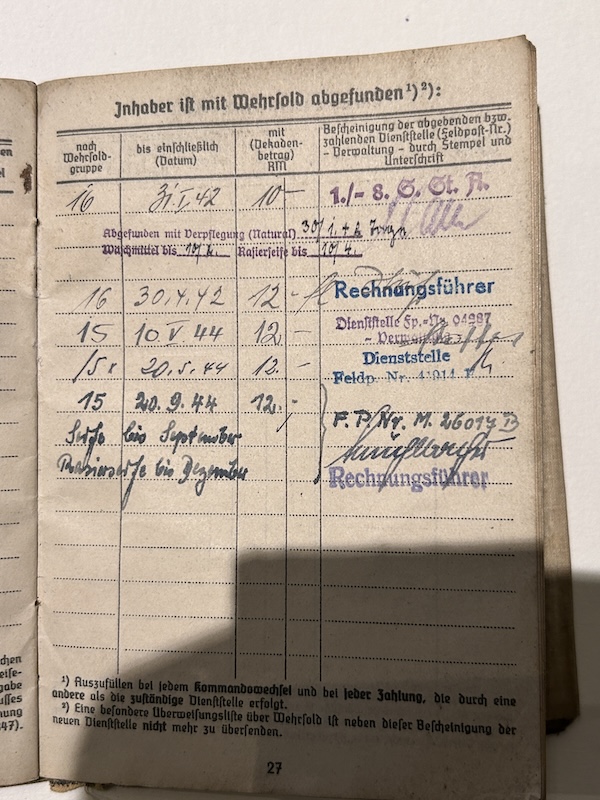 Inhaber ist mit Wehrsold abgefunden¹)²):
nach Wehrsold-gruppe | bis einschließlich (Datum) | mit (Dekaden-betrag) RM | Bescheinigung der abgebenden bzw. zahlenden Dienststelle (Feldpost-Nr.) – Verwaltung – durch Stempel und Unterschrift
16 31.I.42 10 – 1./– 8. S. St. A.
Abgefunden mit Verpflegung (Natural) 30/1.42
Waschmittel bis Rasierseife bis 10/4.
16 30.4.42 12 – Rechnungsführer
15 10.V.44 12 – Dienststelle Fp.-Nr. 04287
– Verwaltung –
15 20.5.44 12. – Dienststelle
Feldp. Nr.
15 20.9.44 12.– F.P.Nr. M. 26017 B
Seife bis September
Rasierseife bis Dezember
Rechnungsführer
¹) Auszufüllen bei jedem Kommandowechsel und bei jeder Zahlung, die durch eine
andere als die zuständige Dienststelle erfolgt.
²) Eine besondere Überweisungsliste über Wehrsold ist neben dieser Bescheinigung der
neuen Dienststelle nicht mehr zu übersenden.
27